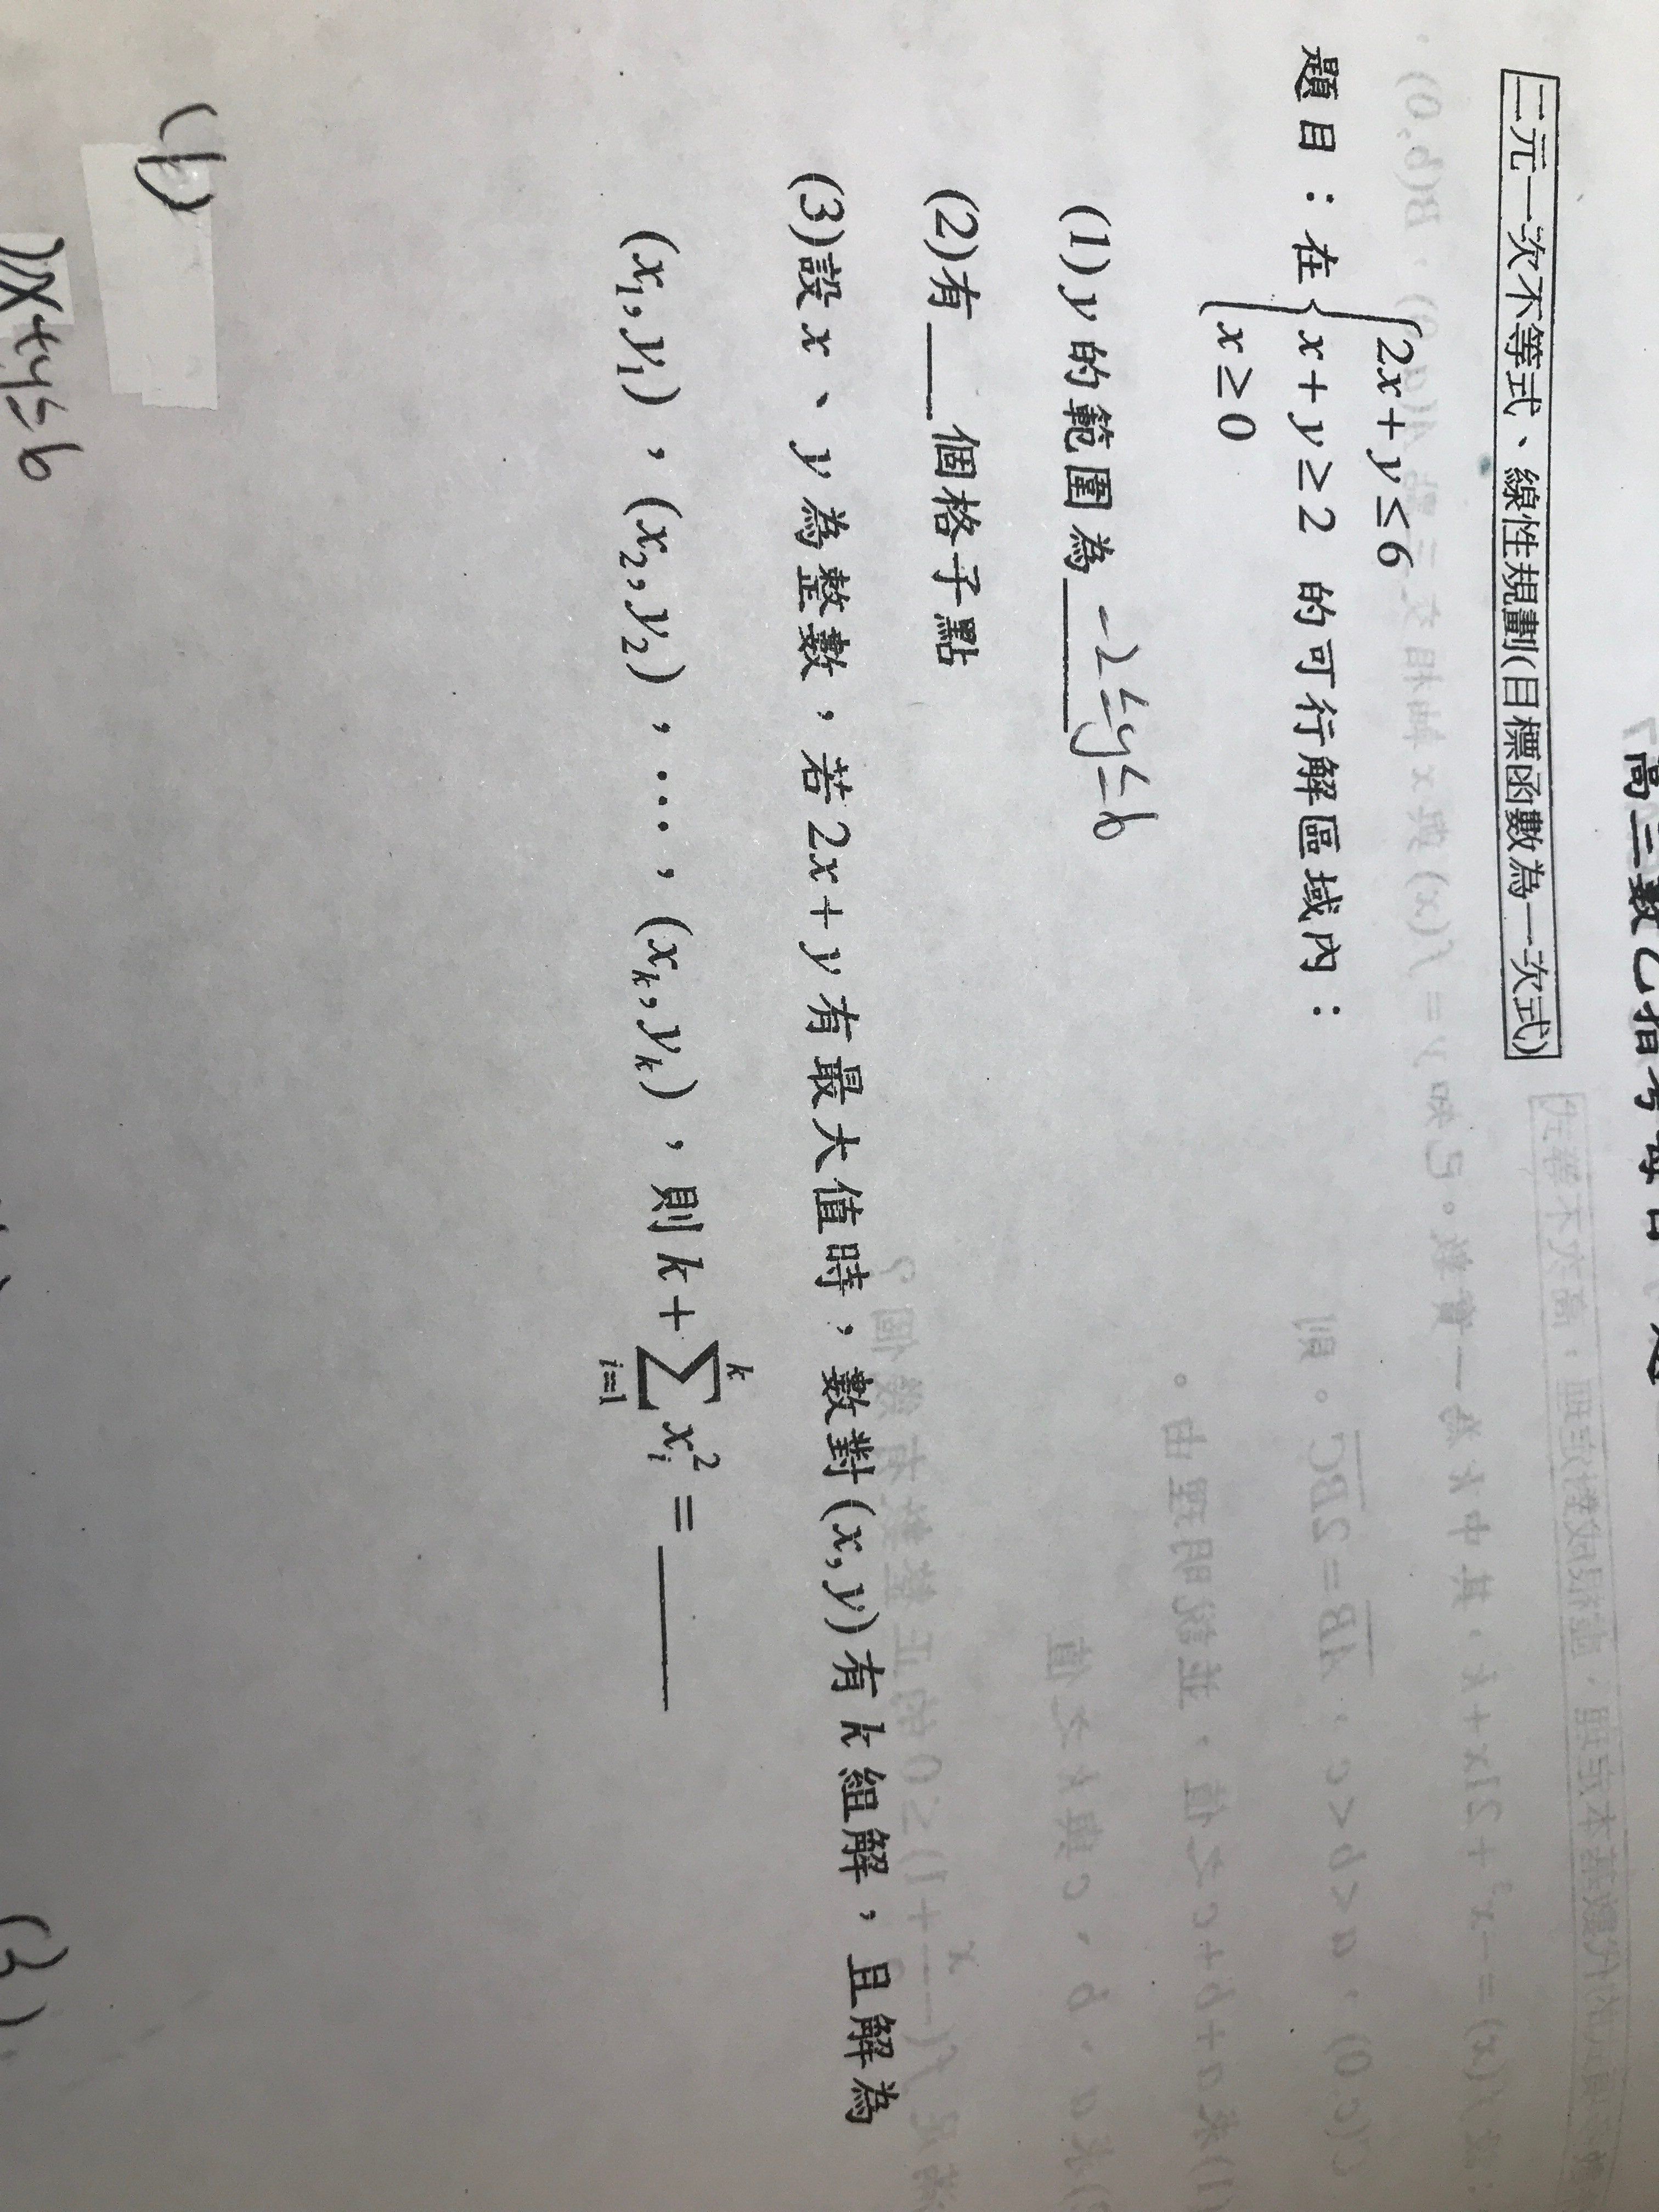 高三數乙指考
二元一次不等式、線性規劃(目標函數為一次式)
題目：在 { 2x+y≤6
x+y≥2 的可行解區域內：
x≥0
(1) y 的範圍為____ -2≤y≤6
(2)有___個格子點
(3)設 x、y 為整數，若 2x+y 有最大值時，數對(x,y)有 k 組解，且解為
(x₁,y₁)，(x₂,y₂)，…，(xₖ,yₖ)，則 k+∑ᵢ₌₁ᵏ xᵢ²=____
(1)
x+y≤6
(3)